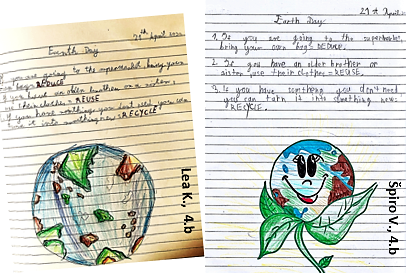 April
Earth Day
you are going to the supermarket, bring your
own bags REDUCE
if you have an older brother or a sister,
use their clothes = REUSE
if you have something you don't need you can
turn it into something new = RECYCLE
Lea K., 4.b
April
Earth Day
1. If you are going to the supermarket,
bring your own bags = REDUCE.
2. If you have an older brother or
sister use their clothes = REUSE.
3. If you have something you don't need
you can turn it into something new =
RECYCLE.
Špiro V., 4.b